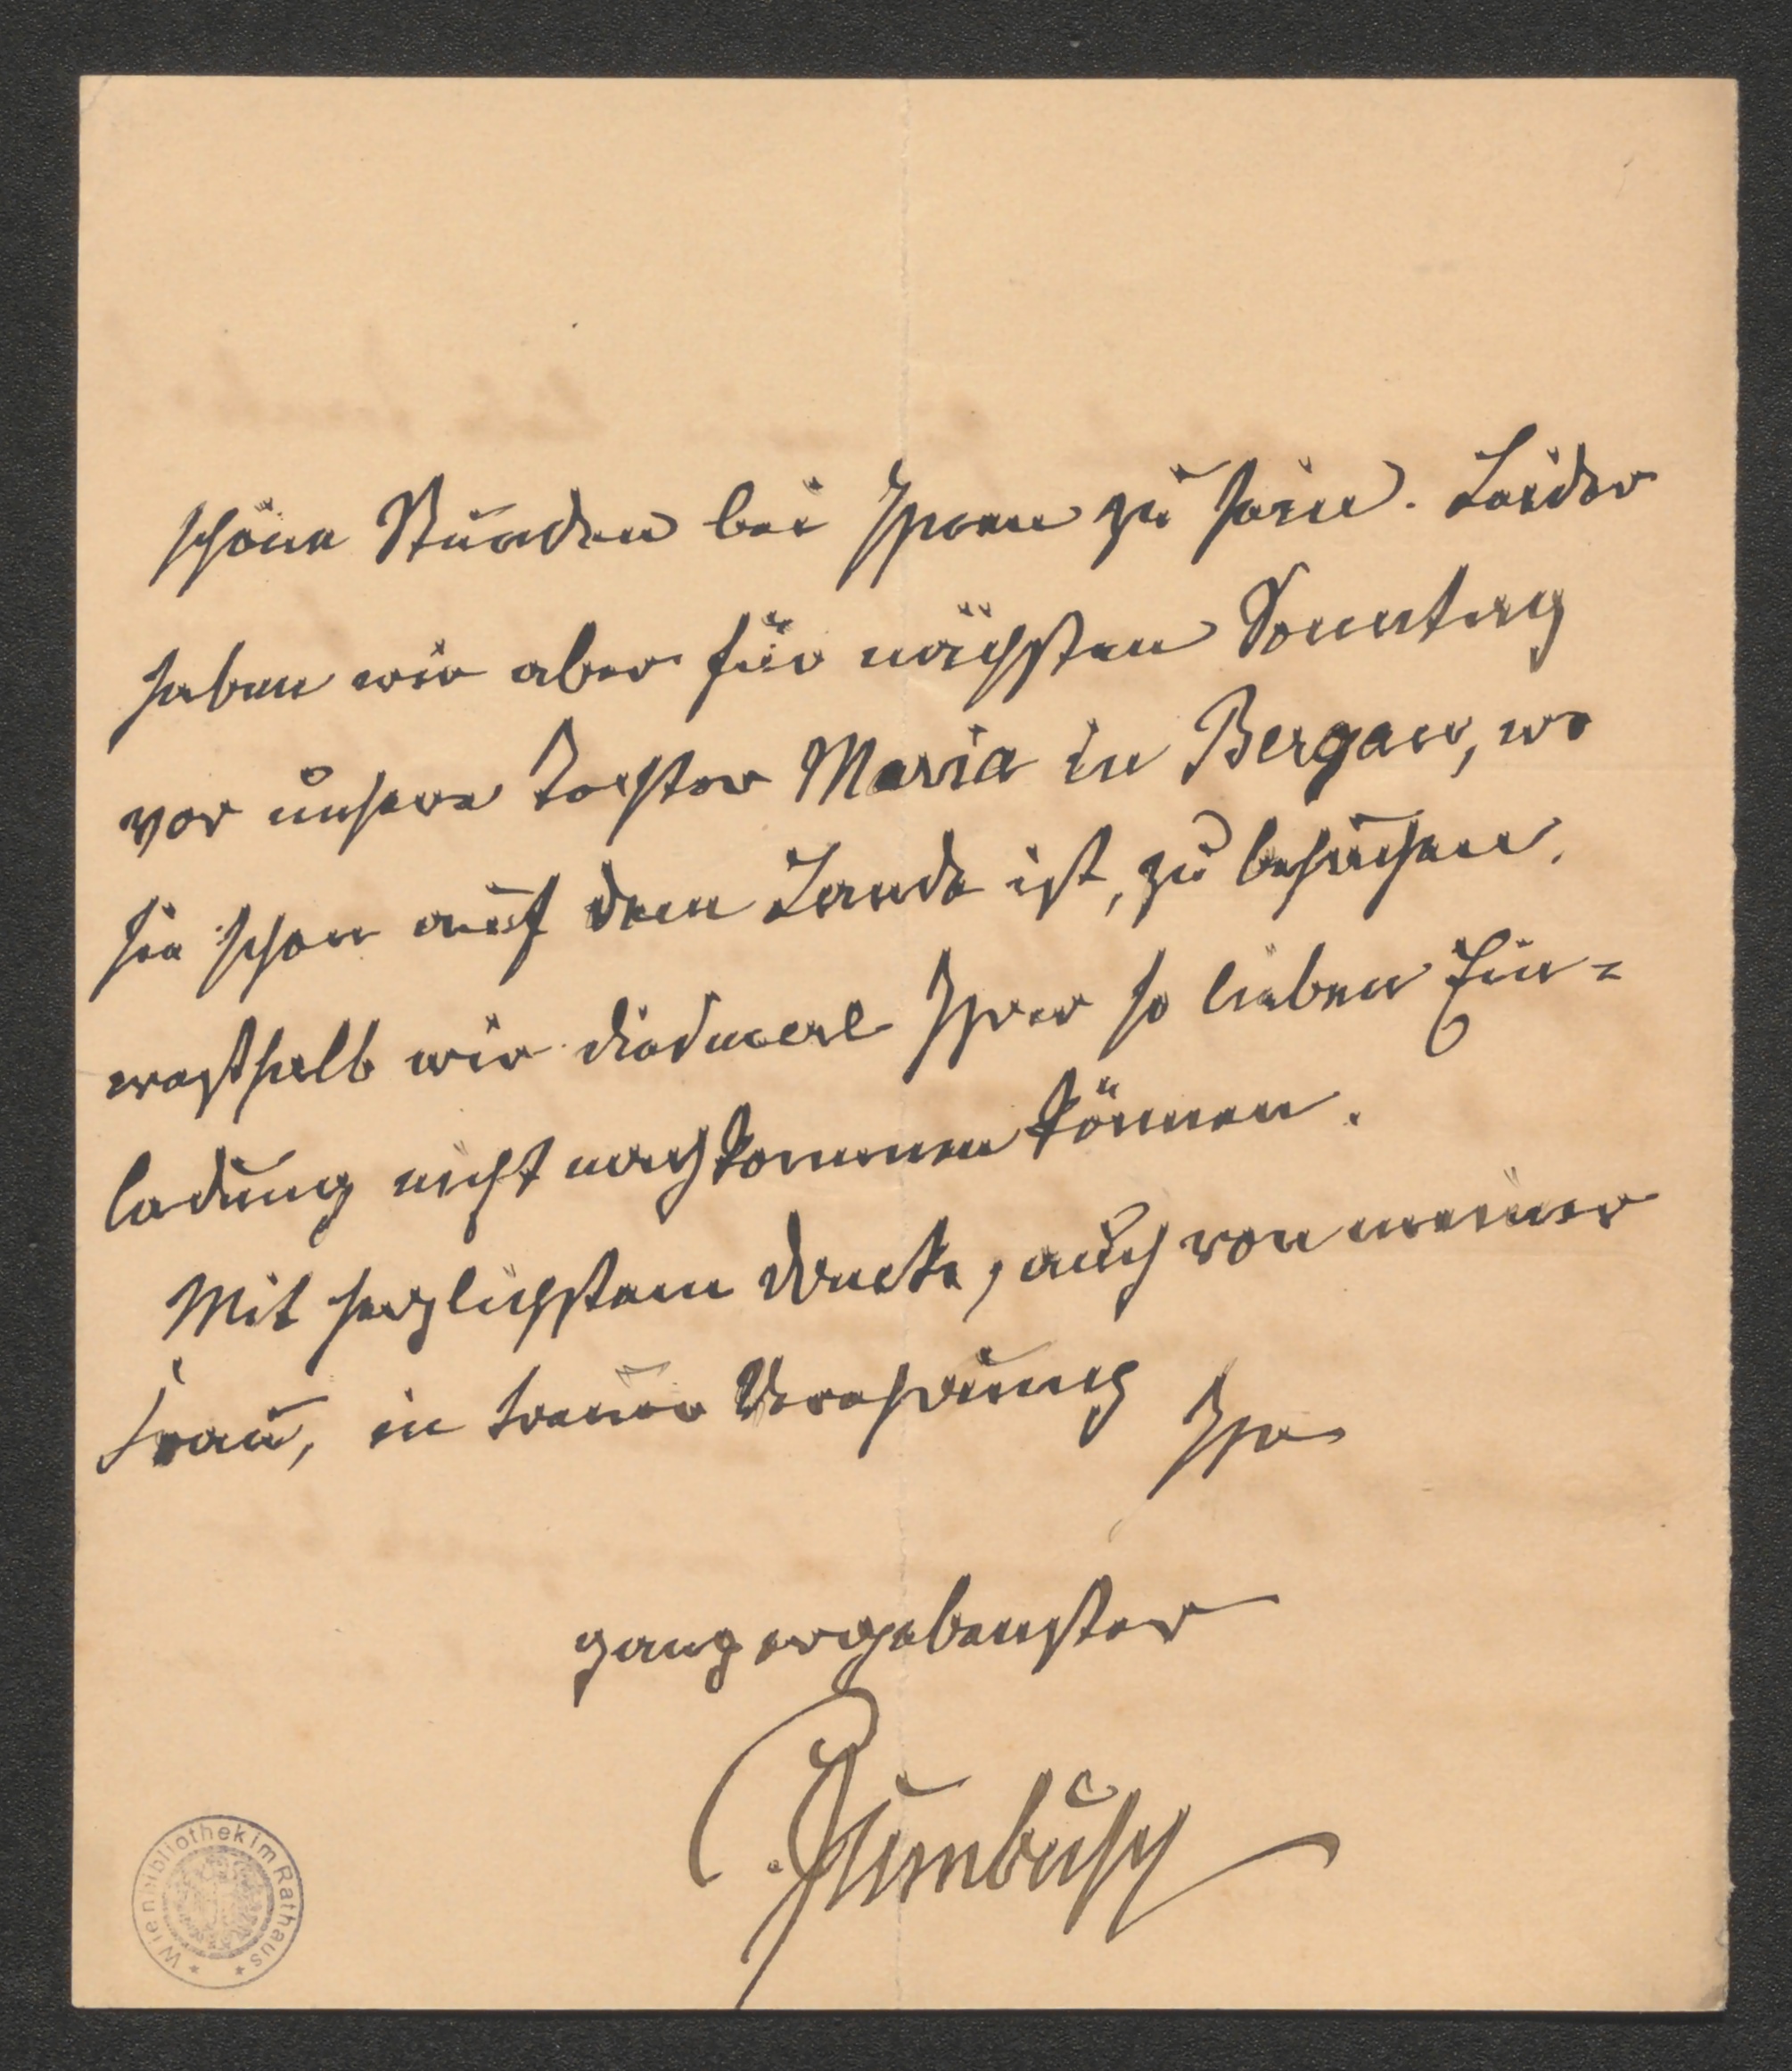 schöne Stunden bei Ihnen zu sein. Leider
haben wir aber für nächsten Sonntag
vor unsere Tochter Maria in Bergau, wo
sie schon auf dem Lande ist, zu besuchen,
weßhalb wir diesmal Ihrer so lieben Ein=
ladung nicht nachkommen können.
Mit herzlichstem Danke, auch von meiner
Frau, in treuer Verehrung
Ihr
ganz ergebenster
C. Zumbusch
Wienbibliothek im Rathaus